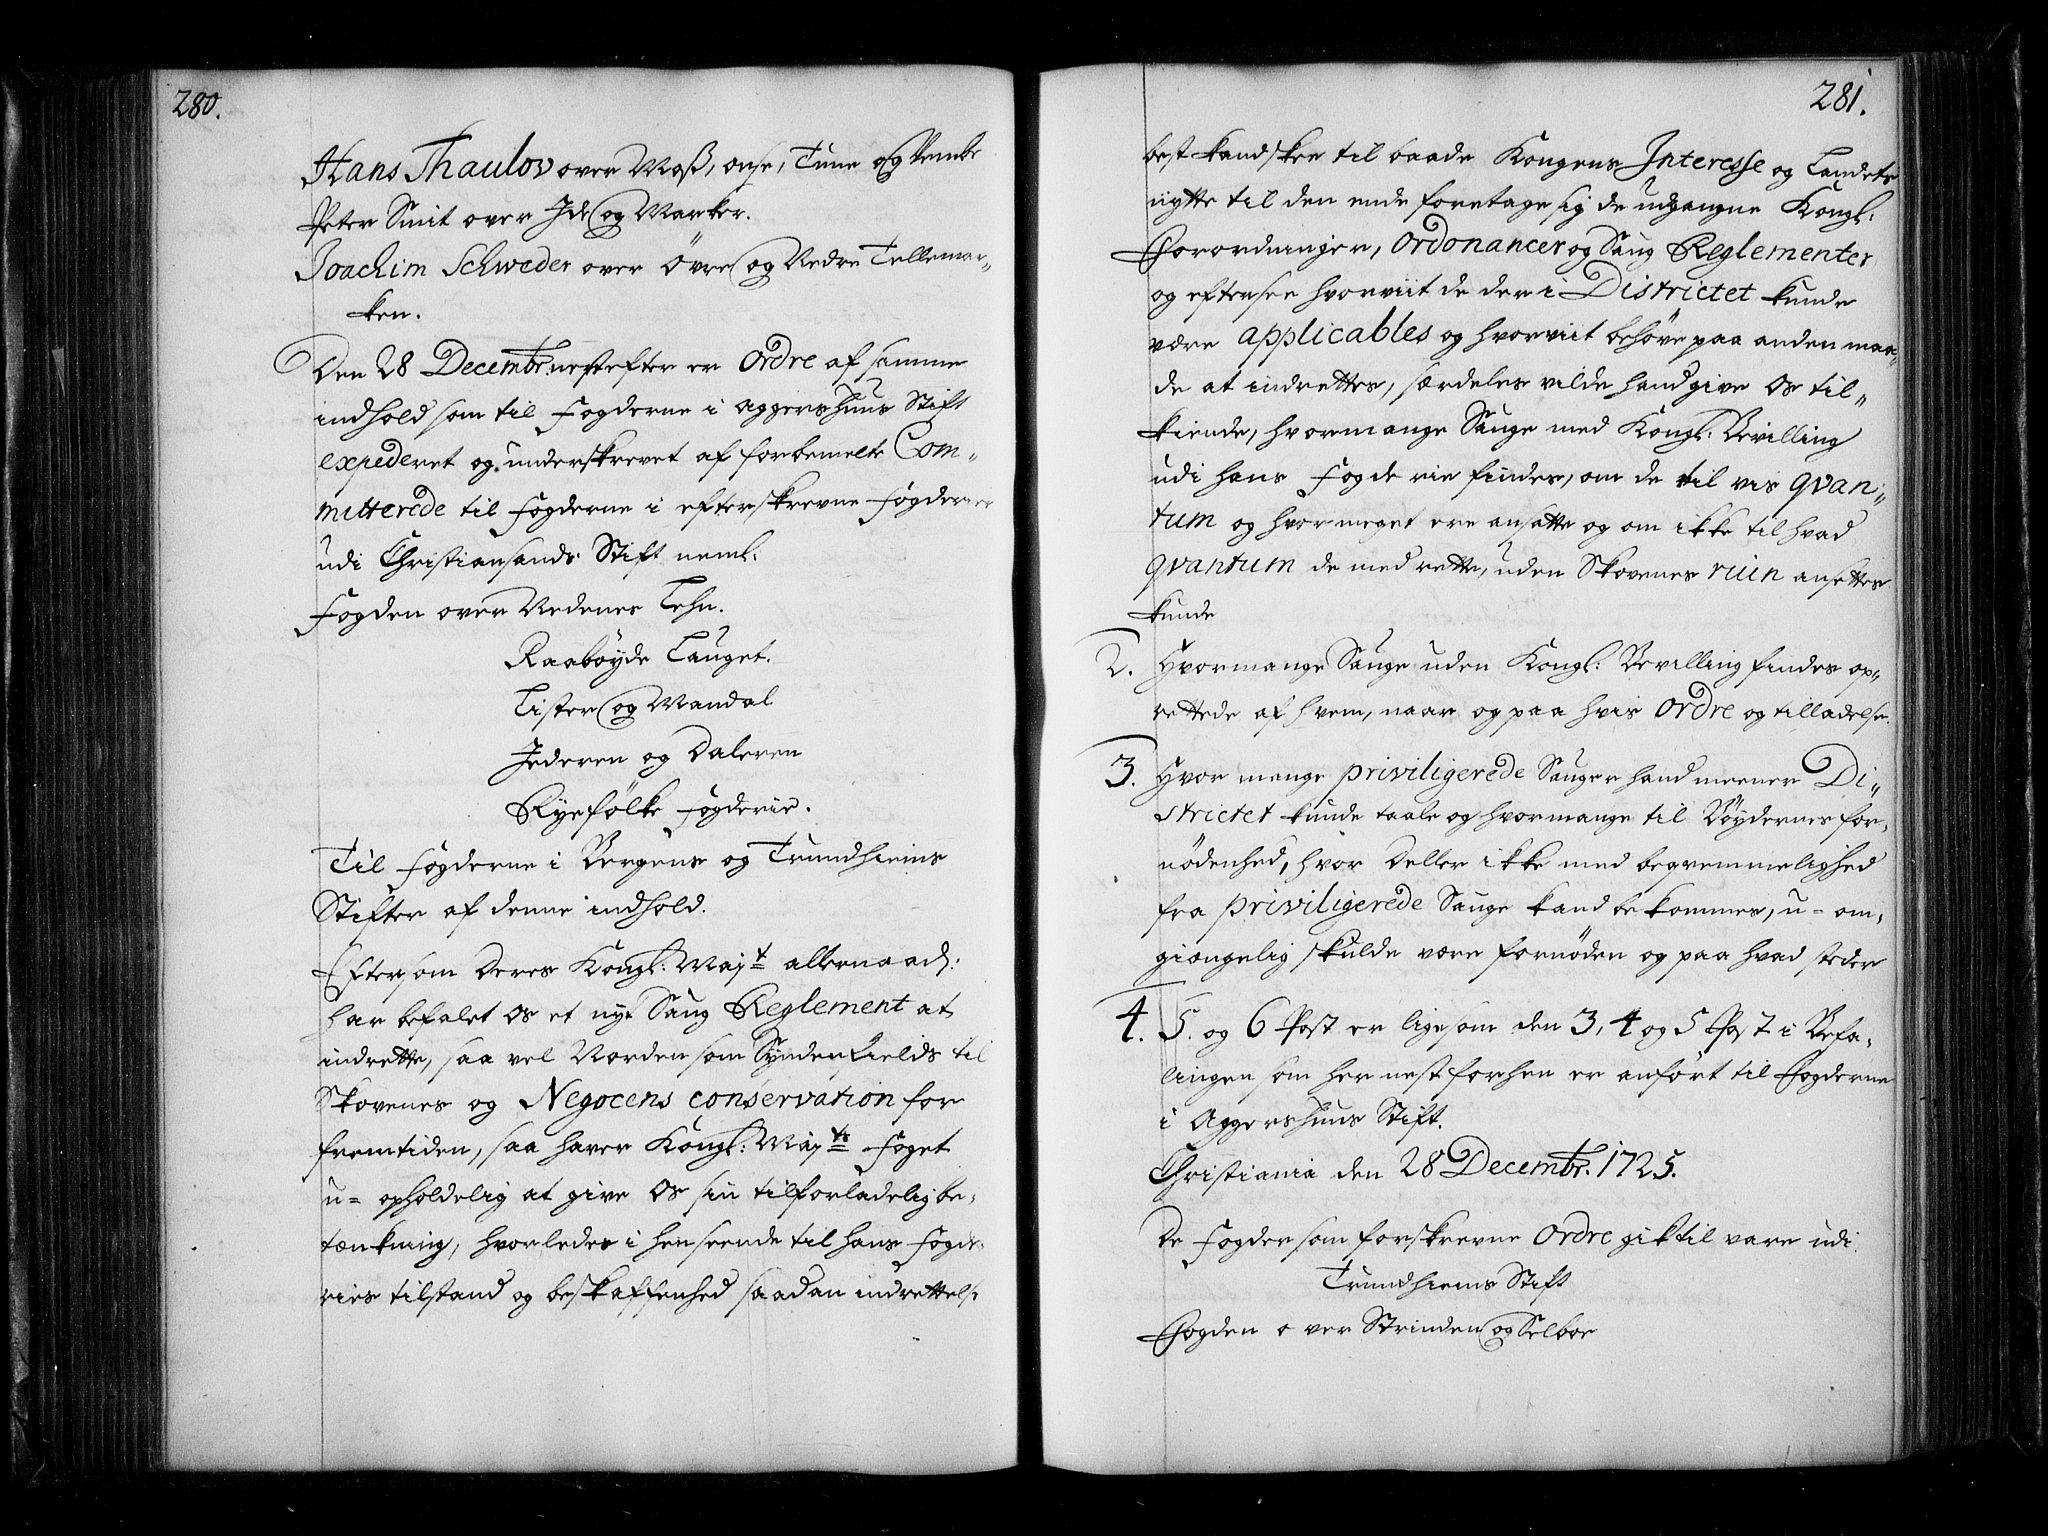 280.
Hans Thaulov over Moss, onsø, Tune og Vembe
Peter Smit over Ide og Marker.
Joachim Schweder over Övre og Nedre Tellemar„
ken.
Den 28 Decembr. nestefter er Ordre af samme
indhold som til Fogderne i Aggershuus Stift
expederet og underskrevet af forbemelte Com„
mitterede til Fogderne i efterskrevne Fogderier
udi Christiansands Stift neml:
Fogden over Nedenes Lehn.
Raabøyde Lauget.
Lister og Mandal
Jederen og Dalerne
Ryefølke Fogderie.
Til Fogderne i Bergens og Trundhiems
Stifter af denne indhold.
Eftersom Deres Kongl: Mayt allernaad:
har befalet os et nyt Saug Reglement at
indrette, saa vel Norden som Syndenfields til
Skovenes og Negocens conservation for
fremtiden, saa haver Kongl: Mayts Foget
u- opholdelig at give os sin tilforladelig be„
tænkning, hvorledes i henseende til hans Fogde„
ries tilstand og beskaffenhed saadan indrettelse
281.
best kand skee til baade Kongens Interesse og Landets
nytte til den ende foretage sig de udgangne Kongl:
Forordninger, Ordonancer og Saug Reglementer
og eftersee hvorviit de der i Districtet kunde
være applicables og hvorviit behøve paa anden maa„
de at indrettes, særdeles vilde hand give os til„
kiende, hvormange Sauge med Kongl: Bevilling
udi hans Fogderie findes, om de til vis qvan„
tum og hvor meget ere ansatte og om ikke til hvad
qvantum de med rette, uden Skovenes ruin ansettes
kunde
2. Hvormange Sauge uden Kongl: Bevilling findes op„
rettede af hvem, naar og paa hvis Ordre og tilladelse.
3. Hvor mange priviligerede Sauger hand meener Di„
strictet kunde taale og hvormange til Bøydernes for„
nødenhed, hvor Deller ikke med beqvemmelighed
fra priviligerede Sauge kand bekommes, u- om„
giængelig skulde være fornøden og paa hvad steder
4. 5. og 6 Post er ligesom den 3, 4 og 5 Post i Befa„
lingen som her nest forhen er anført til Fogderne
i Aggershuus Stift.
Christiania den 28 Decembr. 1725.
De Fogder som forskrevne Ordre gik til vare udi
Trundhiems Stift
Fogden over Strinden og Selboe